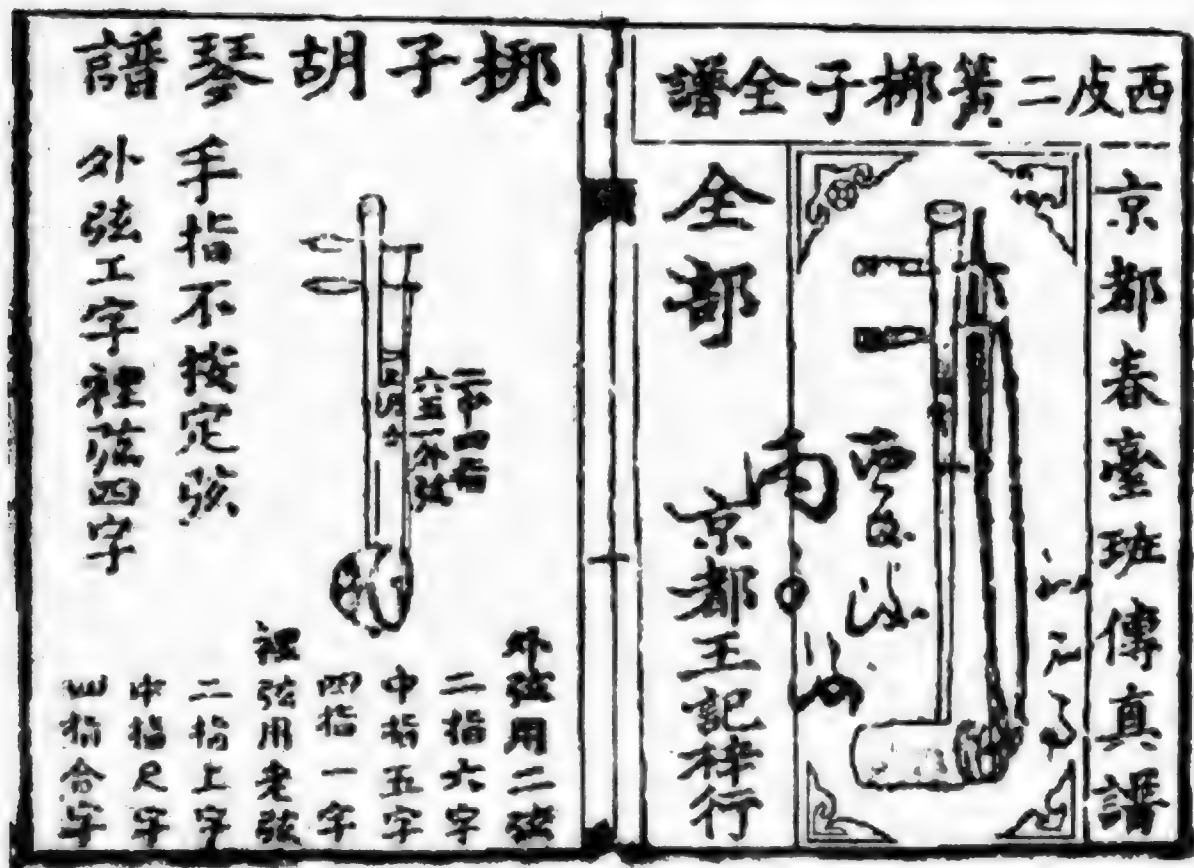 西皮二簧梆子全譜
京都春臺班傳真譜
全部
京都王記梓行
梆子胡琴譜
二中四指
六五一外弦
手指不按定弦
外弦工字裡弦四字
外弦用二弦
二指六字
中指五字
四指一字
裡弦用老弦
二指上字
中指尺字
四指合字